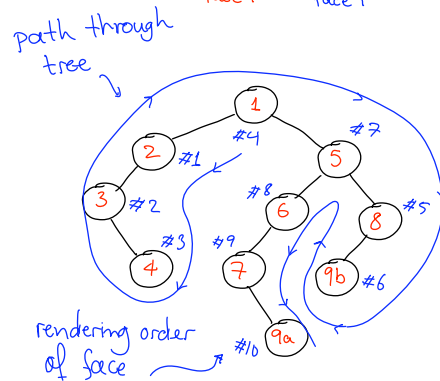 path through
tree
1
#4
#7
2
#1
5
3
#2
#8
6
8
#5
#3
4
#9
7
9b
#6
rendering order
of face
#10
9a